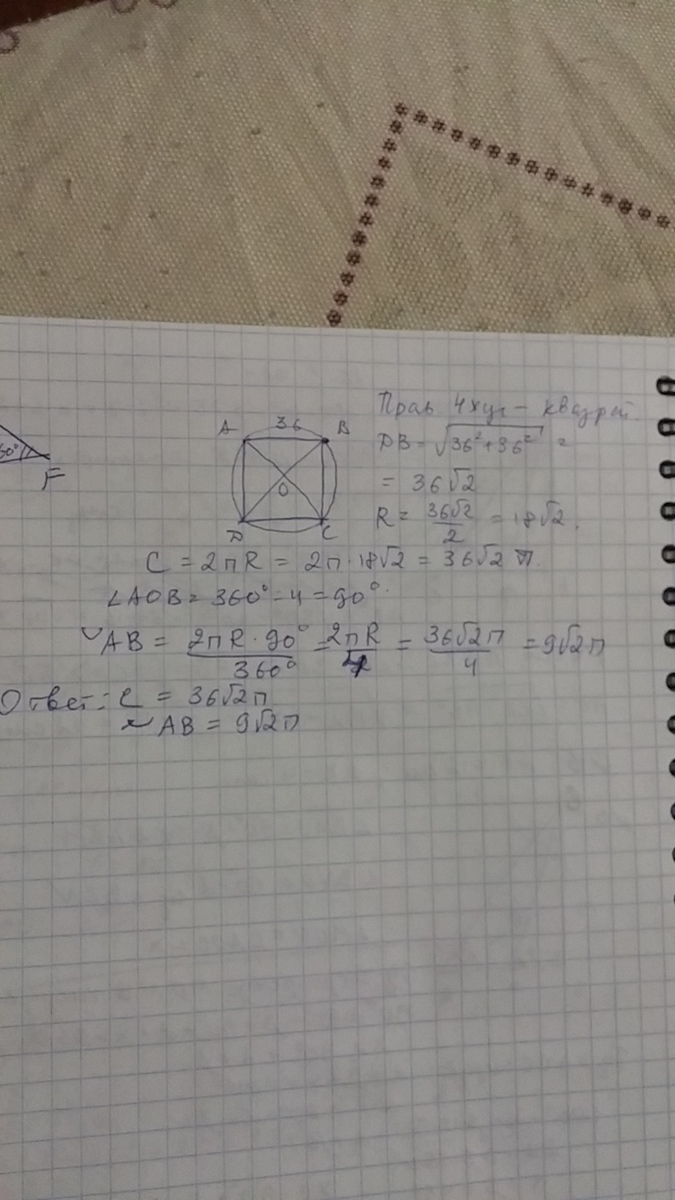 60°
F
A 36 B
O
D C
Прав 4хуг – квадрат
DB = √36²+36² =
= 36√2
R = 36√2/2 = 18√2.
C = 2πR = 2π·18√2 = 36√2 π
∠AOB = 360° ÷ 4 = 90°
◡AB = 2πR·90°/360° = 2πR/4 = 36√2π/4 = 9√2π
Ответ: C = 36√2π
◡AB = 9√2π